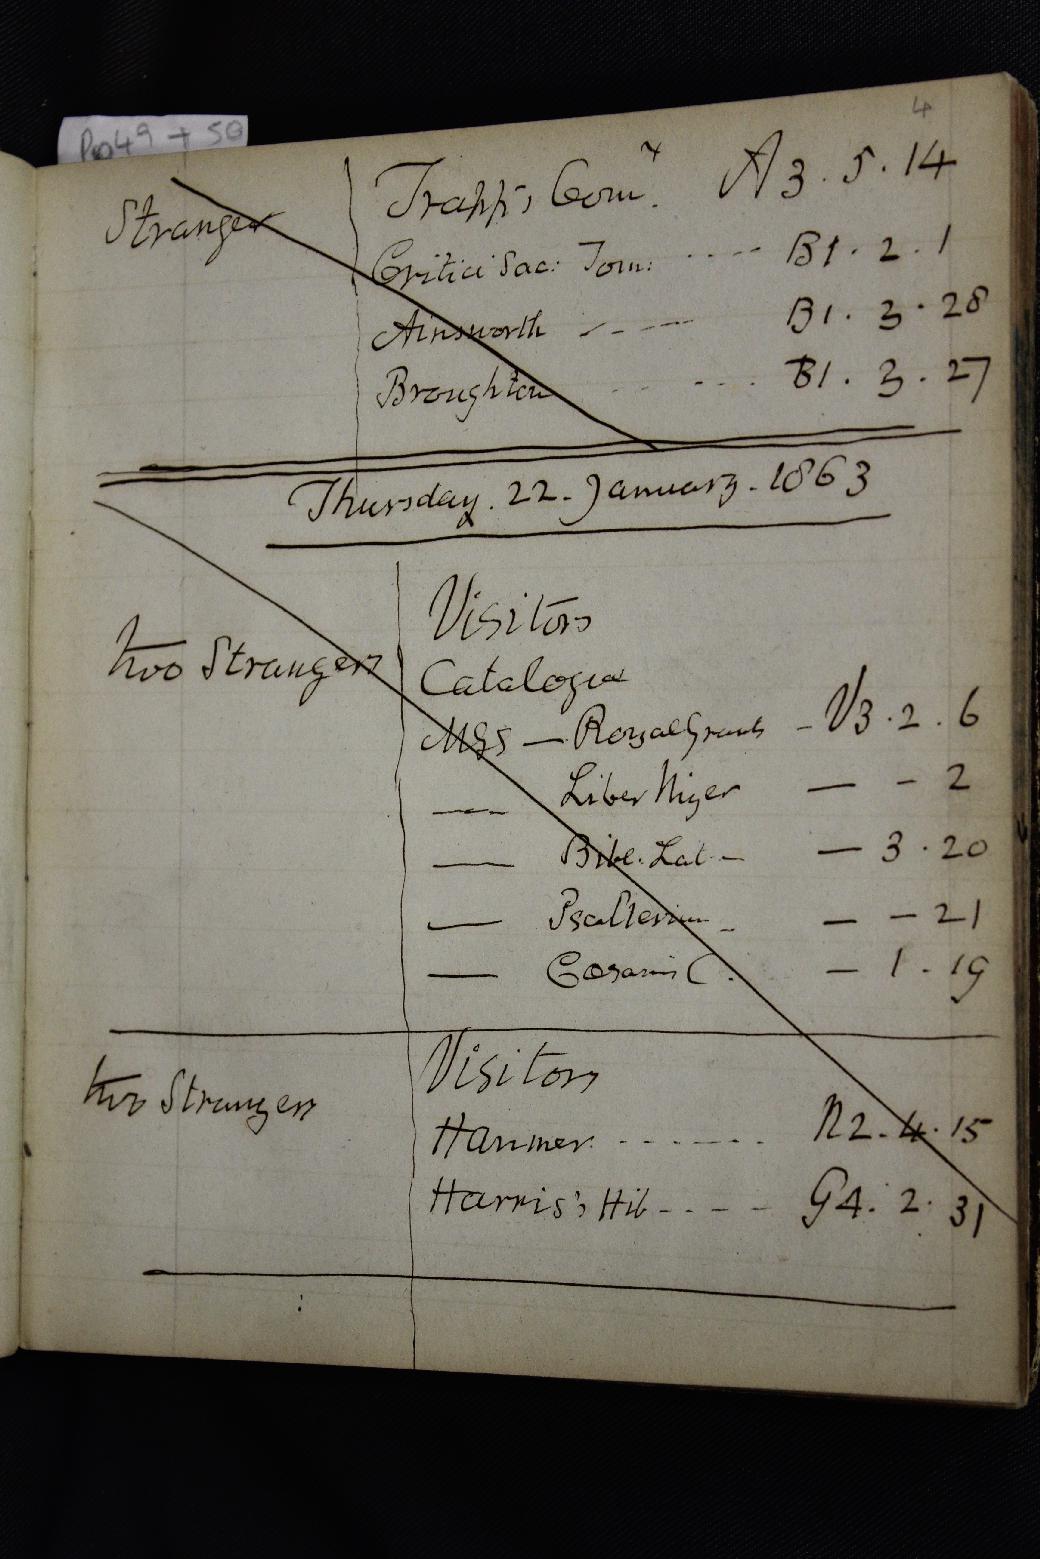 Pp 49 + 50
4
Stranger Trapp's Com.y A3.5.14
Critici Sac: Tom: B1.2.1
Ainsworth B1.3.28
Broughton B1.3.27
Thursday. 22. January. 1863
Visitors
two Strangers Catalogue
MSS — Royal Grants - V3.2.6
— Liber Niger — - 2
— Bibl. Lat - — 3.20
— Psalterium - — - 21
— — 1.19
Visitors
two Strangers
Hanmer N2.4.15
Harris's Hib G4.2.31